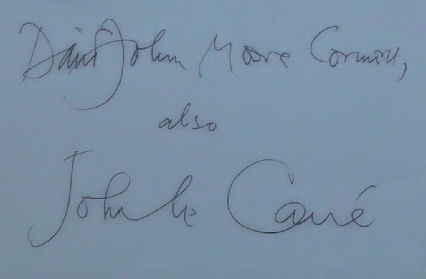 David John Moore Cornwell,
also
John le Carré